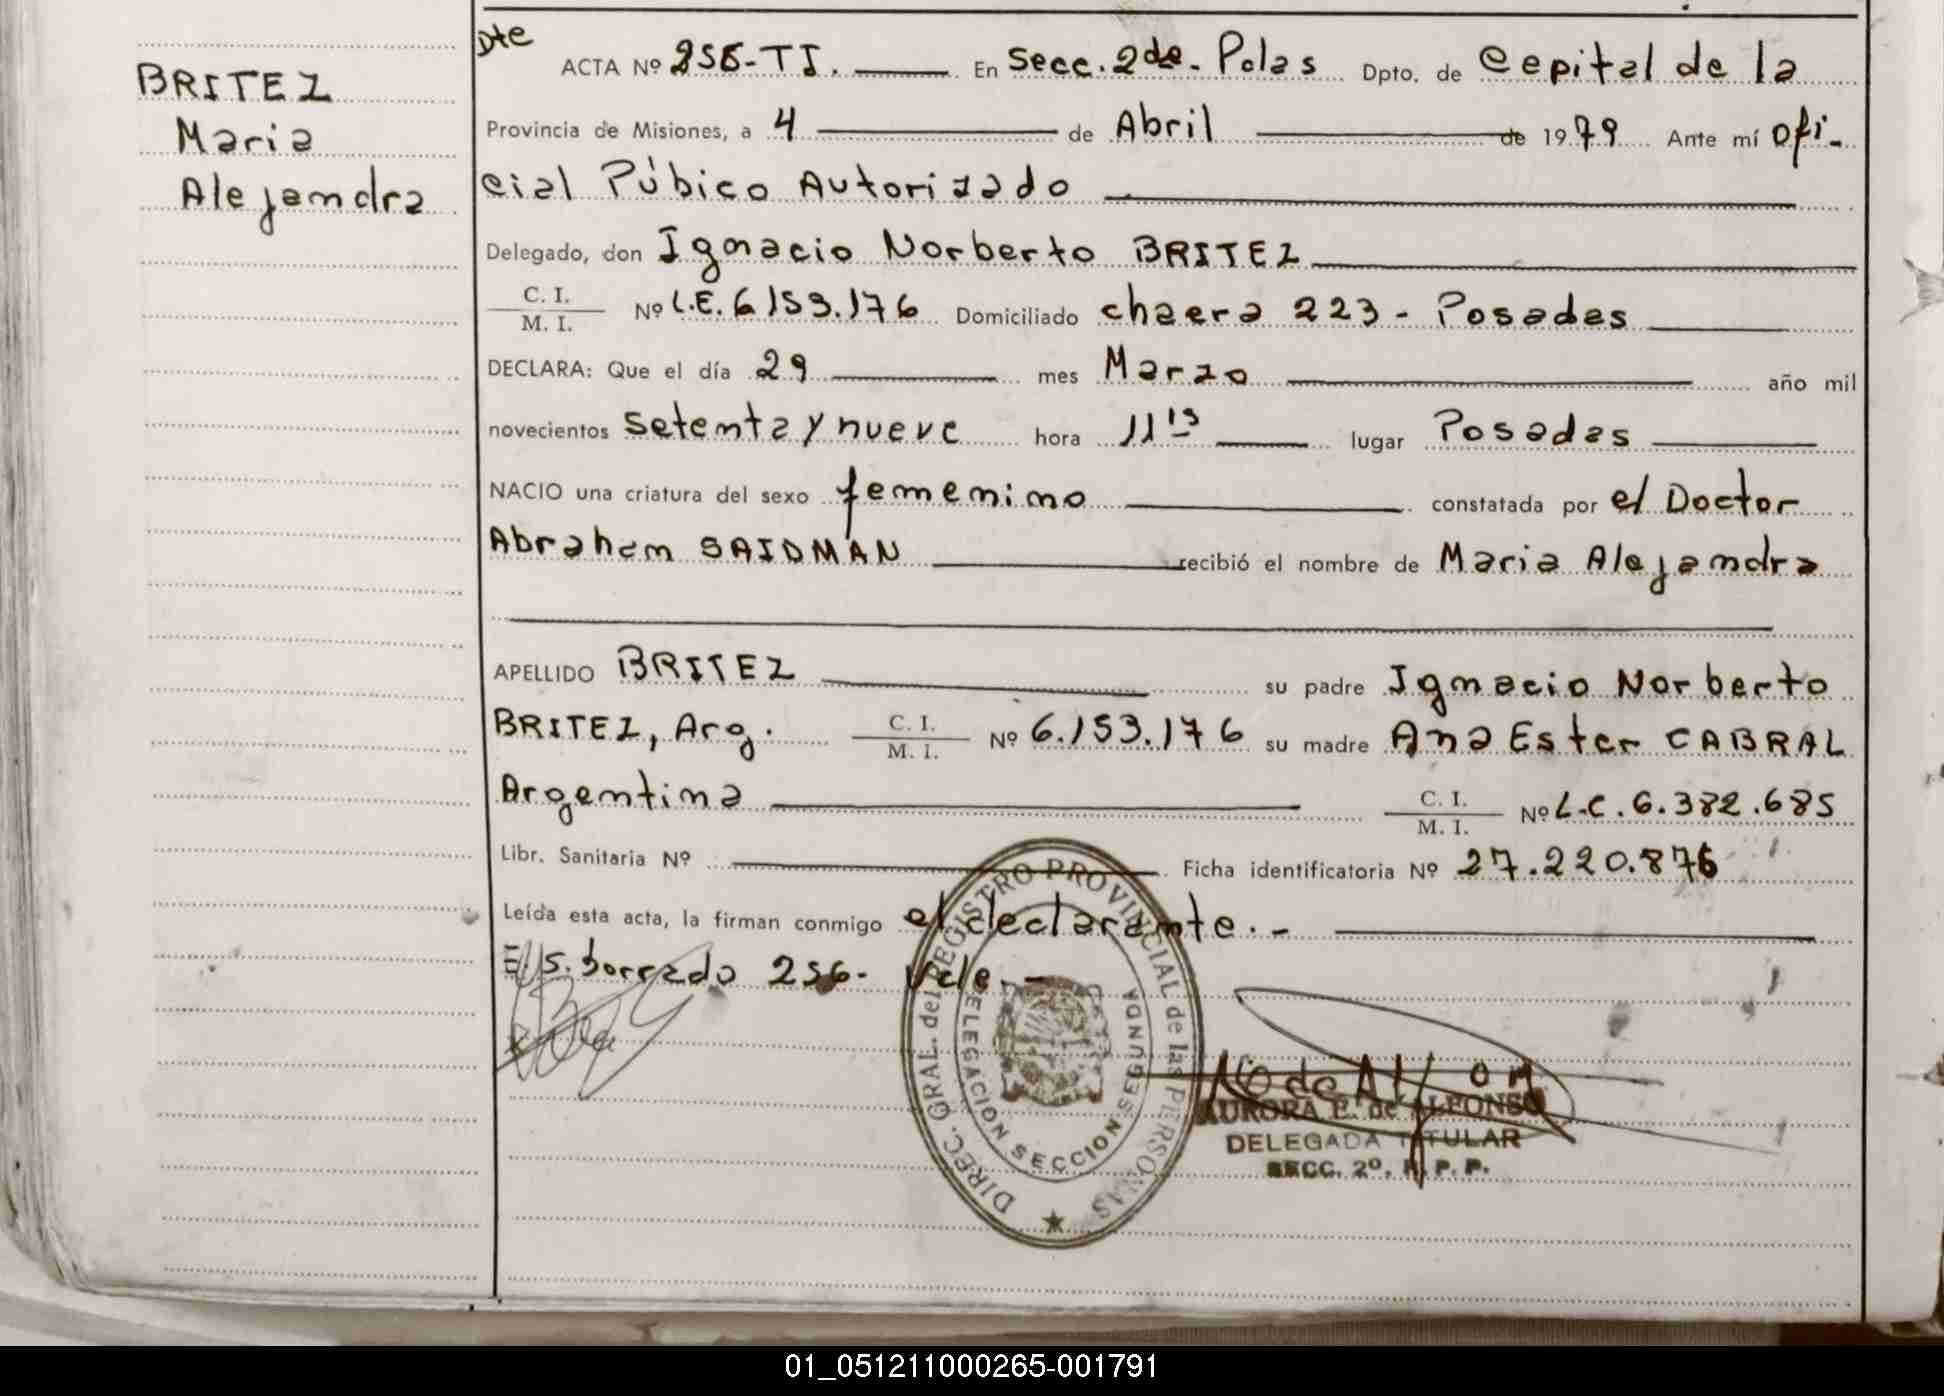 BRITEZ
Maria
Alejandra
Dte
ACTA Nº 256-TI. En Secc. 2da. Pdas Dpto. de Capital de la
Provincia de Misiones, a 4 de Abril de 1979 Ante mí ofi-
cial Púbico Autorizado
Delegado, don Ignacio Norberto BRITEZ
C. I.
M. I. Nº L.E. 6.153.176 Domiciliado chacra 223 - Posadas
DECLARA: Que el día 29 mes Marzo año mil
novecientos setenta y nueve hora 11 15 lugar Posadas
NACIO una criatura del sexo femenino constatada por el Doctor
Abraham SAIDMAN recibió el nombre de Maria Alejandra
APELLIDO BRITEZ su padre Ignacio Norberto
BRITEZ, Arg. C. I.
M. I. Nº 6.153.176 su madre Ana Ester CABRAL
Argentina C. I.
M. I. Nº L.C. 6.382.685
Libr. Sanitaria Nº Ficha identificatoria Nº 27.220.876
Leída esta acta, la firman conmigo el declarante.-
E/S. borrado 256- Vale.-
DIREC. GRAL. del REGISTRO PROVINCIAL de las PERSONAS
DELEGACION SECCION SEGUNDA
AURORA E. de ALFONSO
DELEGADA TITULAR
SECC. 2º. R. P. P.
01_051211000265-001791